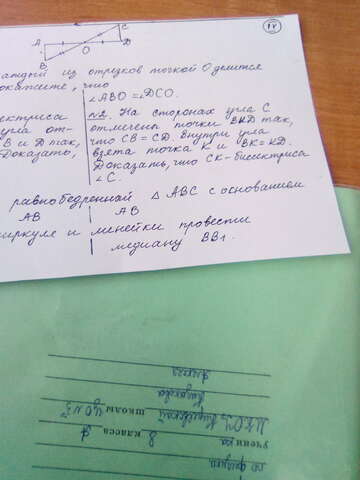 14
A
C
O
D
B
каждый из отрезков точкой O делится
докажите, что
∠ABO = ∠DCO.
ектриса
угла от-
B и D так,
Доказать,
N2. На сторонах угла C
отмечены точки B и D так,
что CB = CD. Внутри угла
взята точка K и BK = KD.
Доказать, что CK - биссектриса
∠C.
равнобедренной △ ABC с основанием
AB
AB
циркуля и линейки провести
медиану BB₁.
по физике
ученика 8 класса
школы